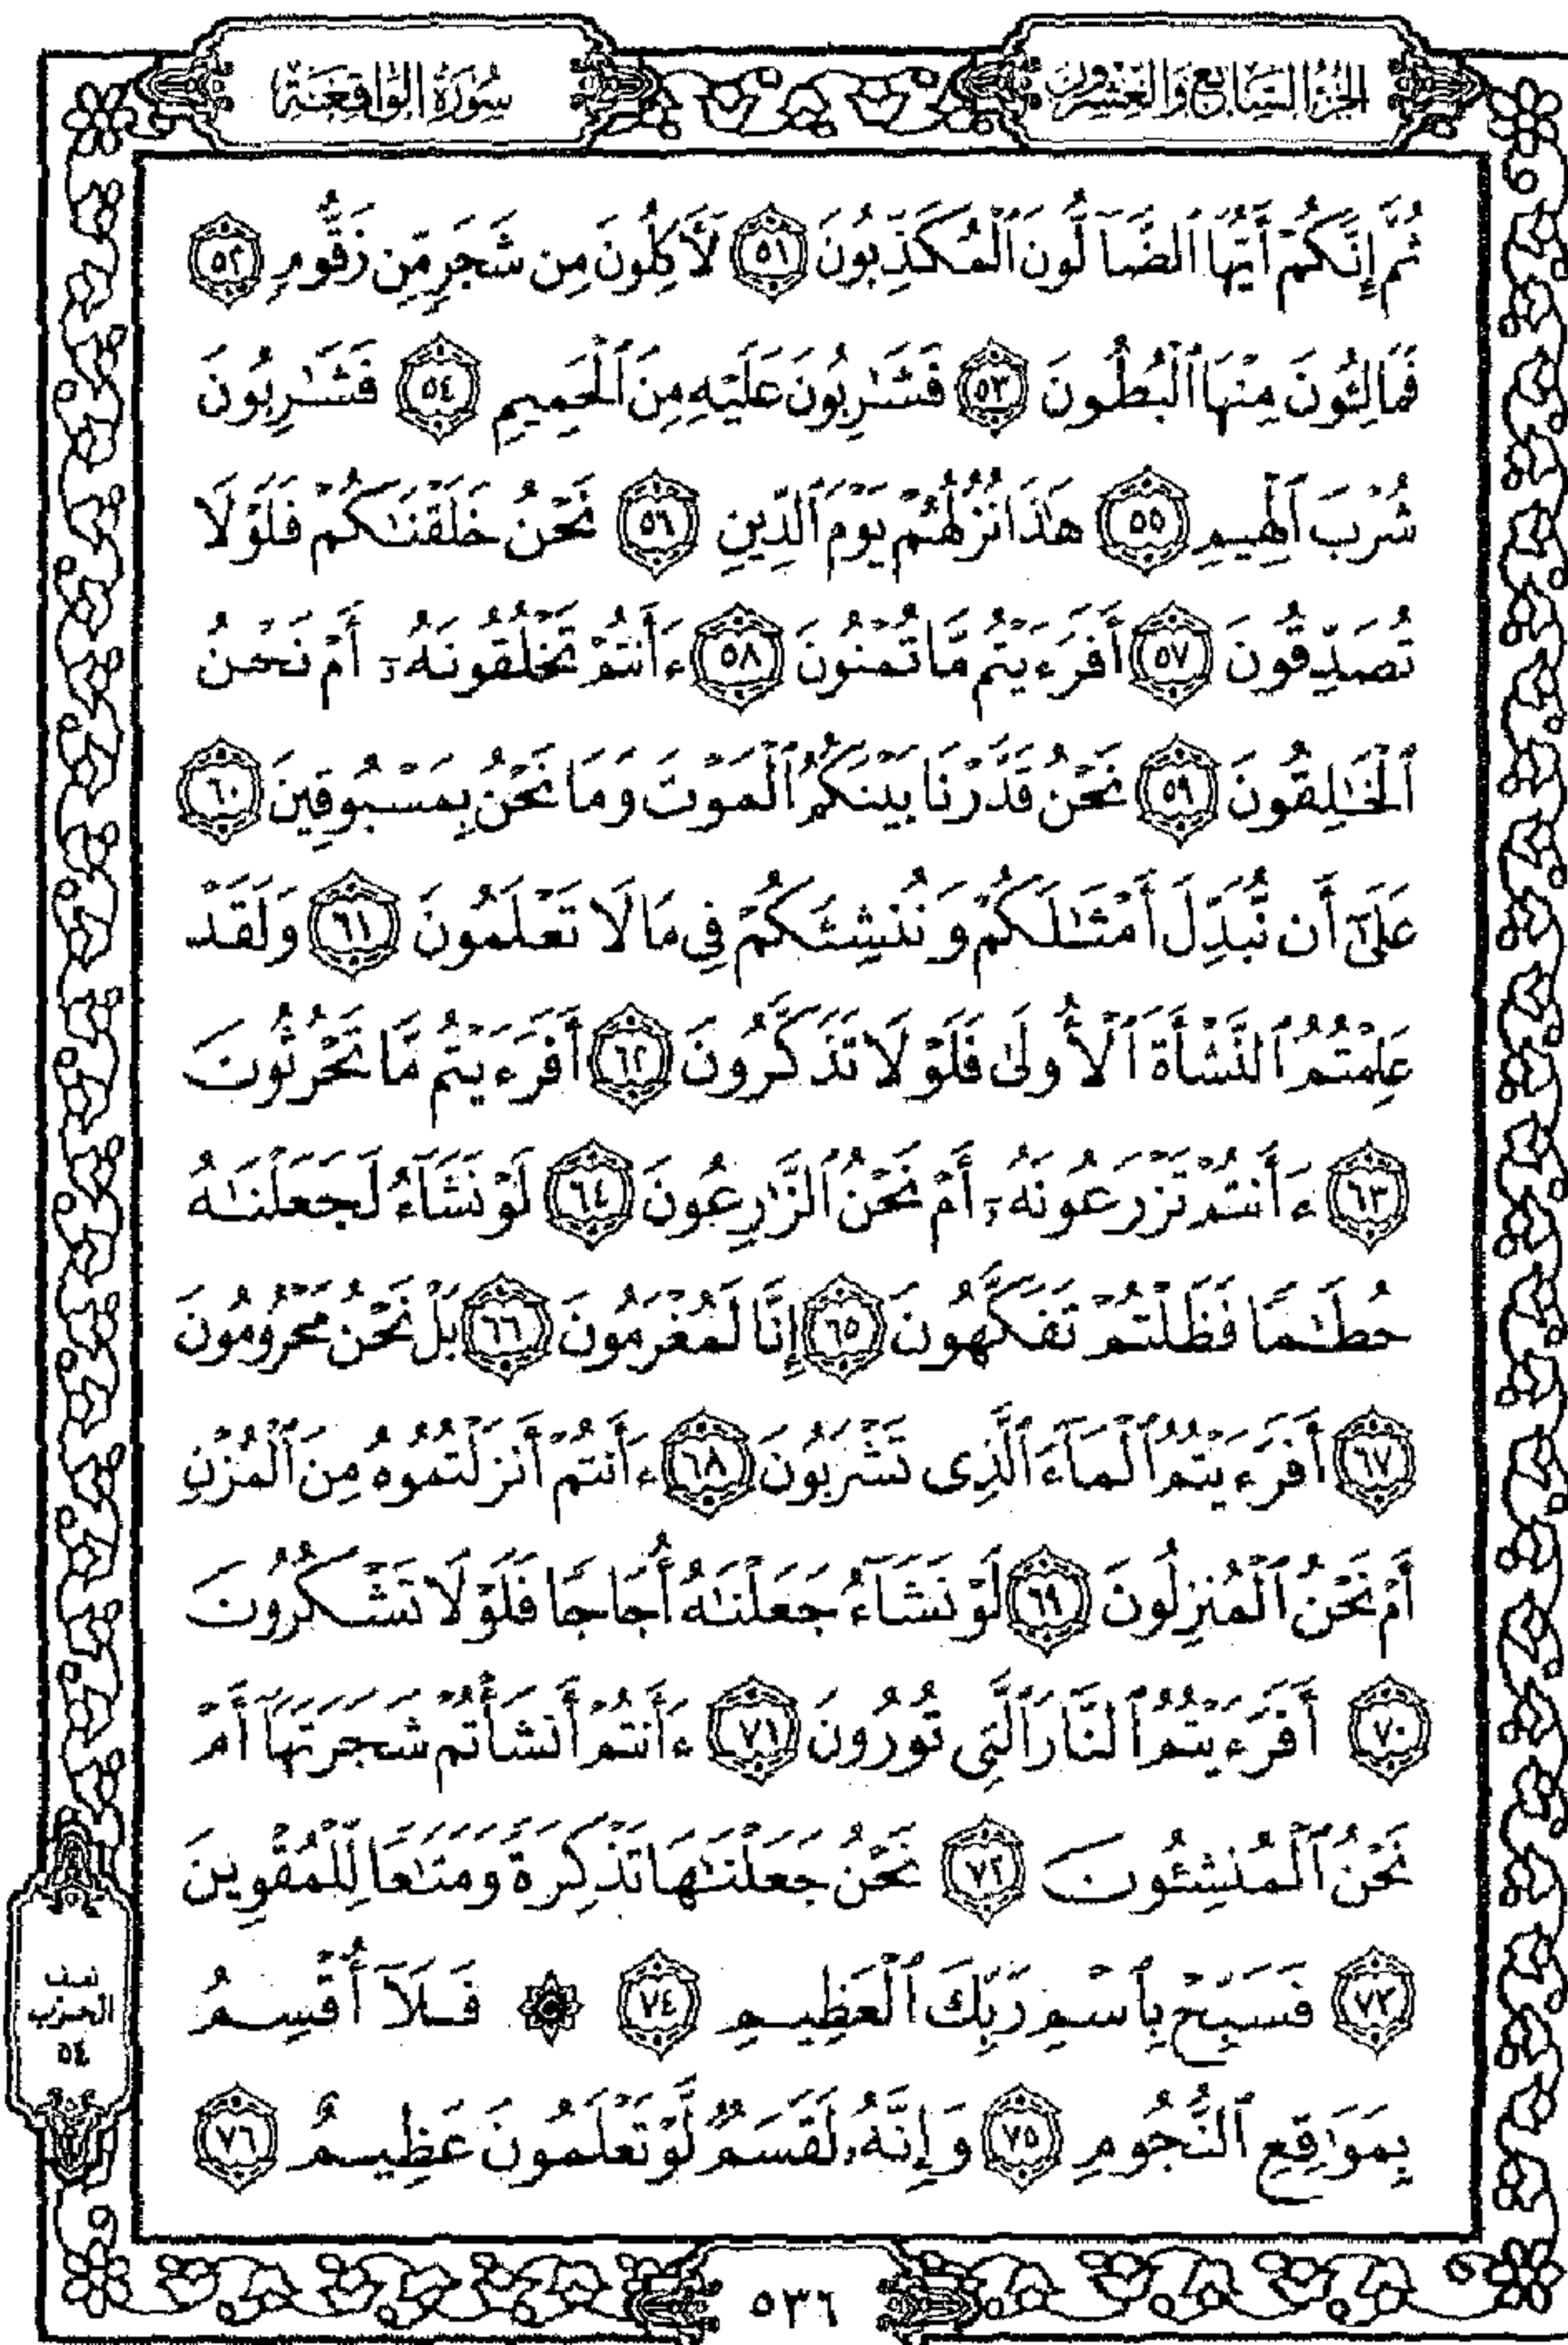 الجزء السابع والعشرون
سورة الواقعة
ثُمَّ إِنَّكُمْ أَيُّهَا ٱلضَّآلُّونَ ٱلْمُكَذِّبُونَ ٥١ لَأَكِلُونَ مِن شَجَرٍ مِّن زَقُّومٍ ٥٢
فَمَالِـُٔونَ مِنْهَا ٱلْبُطُونَ ٥٣ فَشَـٰرِبُونَ عَلَيْهِ مِنَ ٱلْحَمِيمِ ٥٤ فَشَـٰرِبُونَ
شُرْبَ ٱلْهِيمِ ٥٥ هَـٰذَا نُزُلُهُمْ يَوْمَ ٱلدِّينِ ٥٦ نَحْنُ خَلَقْنَـٰكُمْ فَلَوْلَا
تُصَدِّقُونَ ٥٧ أَفَرَءَيْتُم مَّا تُمْنُونَ ٥٨ ءَأَنتُمْ تَخْلُقُونَهُۥٓ أَمْ نَحْنُ
ٱلْخَـٰلِقُونَ ٥٩ نَحْنُ قَدَّرْنَا بَيْنَكُمُ ٱلْمَوْتَ وَمَا نَحْنُ بِمَسْبُوقِينَ ٦٠
عَلَىٰٓ أَن نُّبَدِّلَ أَمْثَـٰلَكُمْ وَنُنشِئَكُمْ فِى مَا لَا تَعْلَمُونَ ٦١ وَلَقَدْ
عَلِمْتُمُ ٱلنَّشْأَةَ ٱلْأُولَىٰ فَلَوْلَا تَذَكَّرُونَ ٦٢ أَفَرَءَيْتُم مَّا تَحْرُثُونَ
٦٣ ءَأَنتُمْ تَزْرَعُونَهُۥٓ أَمْ نَحْنُ ٱلزَّٰرِعُونَ ٦٤ لَوْ نَشَآءُ لَجَعَلْنَـٰهُ
حُطَـٰمًا فَظَلْتُمْ تَفَكَّهُونَ ٦٥ إِنَّا لَمُغْرَمُونَ ٦٦ بَلْ نَحْنُ مَحْرُومُونَ
٦٧ أَفَرَءَيْتُمُ ٱلْمَآءَ ٱلَّذِى تَشْرَبُونَ ٦٨ ءَأَنتُمْ أَنزَلْتُمُوهُ مِنَ ٱلْمُزْنِ
أَمْ نَحْنُ ٱلْمُنزِلُونَ ٦٩ لَوْ نَشَآءُ جَعَلْنَـٰهُ أُجَاجًا فَلَوْلَا تَشْكُرُونَ
٧٠ أَفَرَءَيْتُمُ ٱلنَّارَ ٱلَّتِى تُورُونَ ٧١ ءَأَنتُمْ أَنشَأْتُمْ شَجَرَتَهَآ أَمْ
نَحْنُ ٱلْمُنشِـُٔونَ ٧٢ نَحْنُ جَعَلْنَـٰهَا تَذْكِرَةً وَمَتَـٰعًا لِّلْمُقْوِينَ
٧٣ فَسَبِّحْ بِٱسْمِ رَبِّكَ ٱلْعَظِيمِ ٧٤ ۞ فَلَآ أُقْسِمُ
بِمَوَٰقِعِ ٱلنُّجُومِ ٧٥ وَإِنَّهُۥ لَقَسَمٌ لَّوْ تَعْلَمُونَ عَظِيمٌ ٧٦
نصف
الحزب
٥٤
٥٣٦